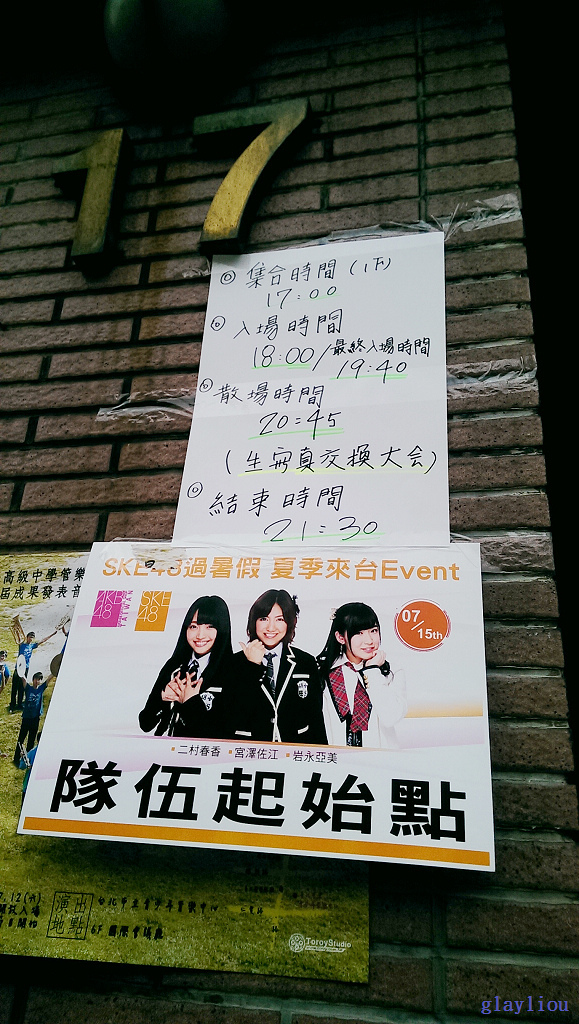 17
◎ 集合時間(1F)
17:00
◎ 入場時間
18:00/最終入場時間
19:40
◎ 散場時間
20:45
(生寫真交換大会)
◎ 結束時間
21:30
SKE48過暑假 夏季來台Event
AKB48 TAIWAN
SKE48
07/15th
二村春香 宮澤佐江 岩永亞美
隊伍起始點
高級中學管樂
屆成果發表音
演出地點
6F 國際會議廳
ToroyStudio
glayliou